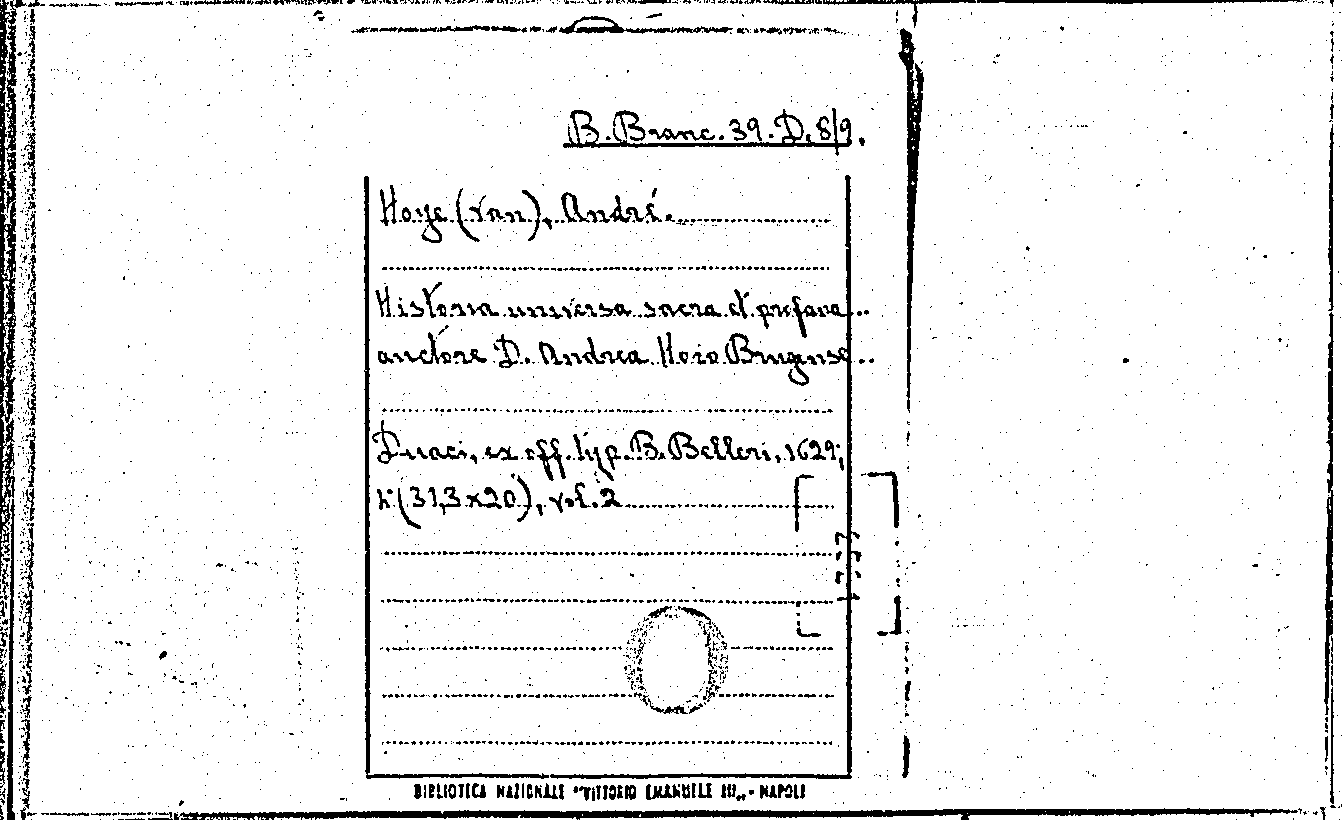 B. Branc. 39. D. 8/9.
Hoye (van), André.
Historia universa sacra et profana...
auctore D. Andrea Hoio Brugense...
Duaci, ex off. typ. B. Belleri, 1629;
(31,3x20), vol. 2
BIBLIOTECA NAZIONALE "VITTORIO EMANUELE III„ - NAPOLI